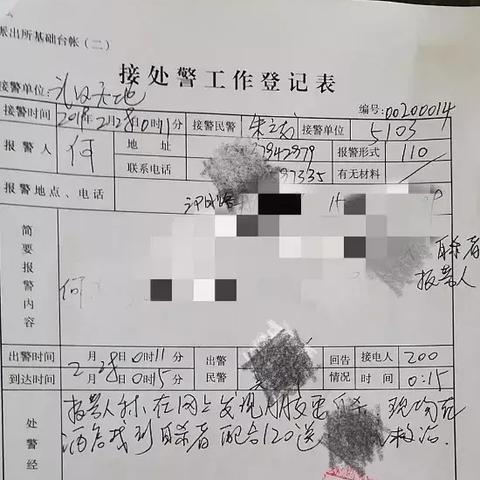 派出所基础台帐（二）
接处警工作登记表
接警单位: 武汉天地 编号: 00200014
接警时间 2019年2月28日0时11分 接警民警 接警单位 5103
报警人 何 地址 7942979 报警形式 110
联系电话 97335 有无材料
报警地点、电话
自杀者
简要报警内容 何 报警人
出警时间 2月28日0时11分 出警民警 回告情况 接电人 200
到达时间 2月28日0时15分 时间 0:15
报警人称在网上发现朋友要自杀，现场在
处警经 酒店找到自杀者配合120送 救治.